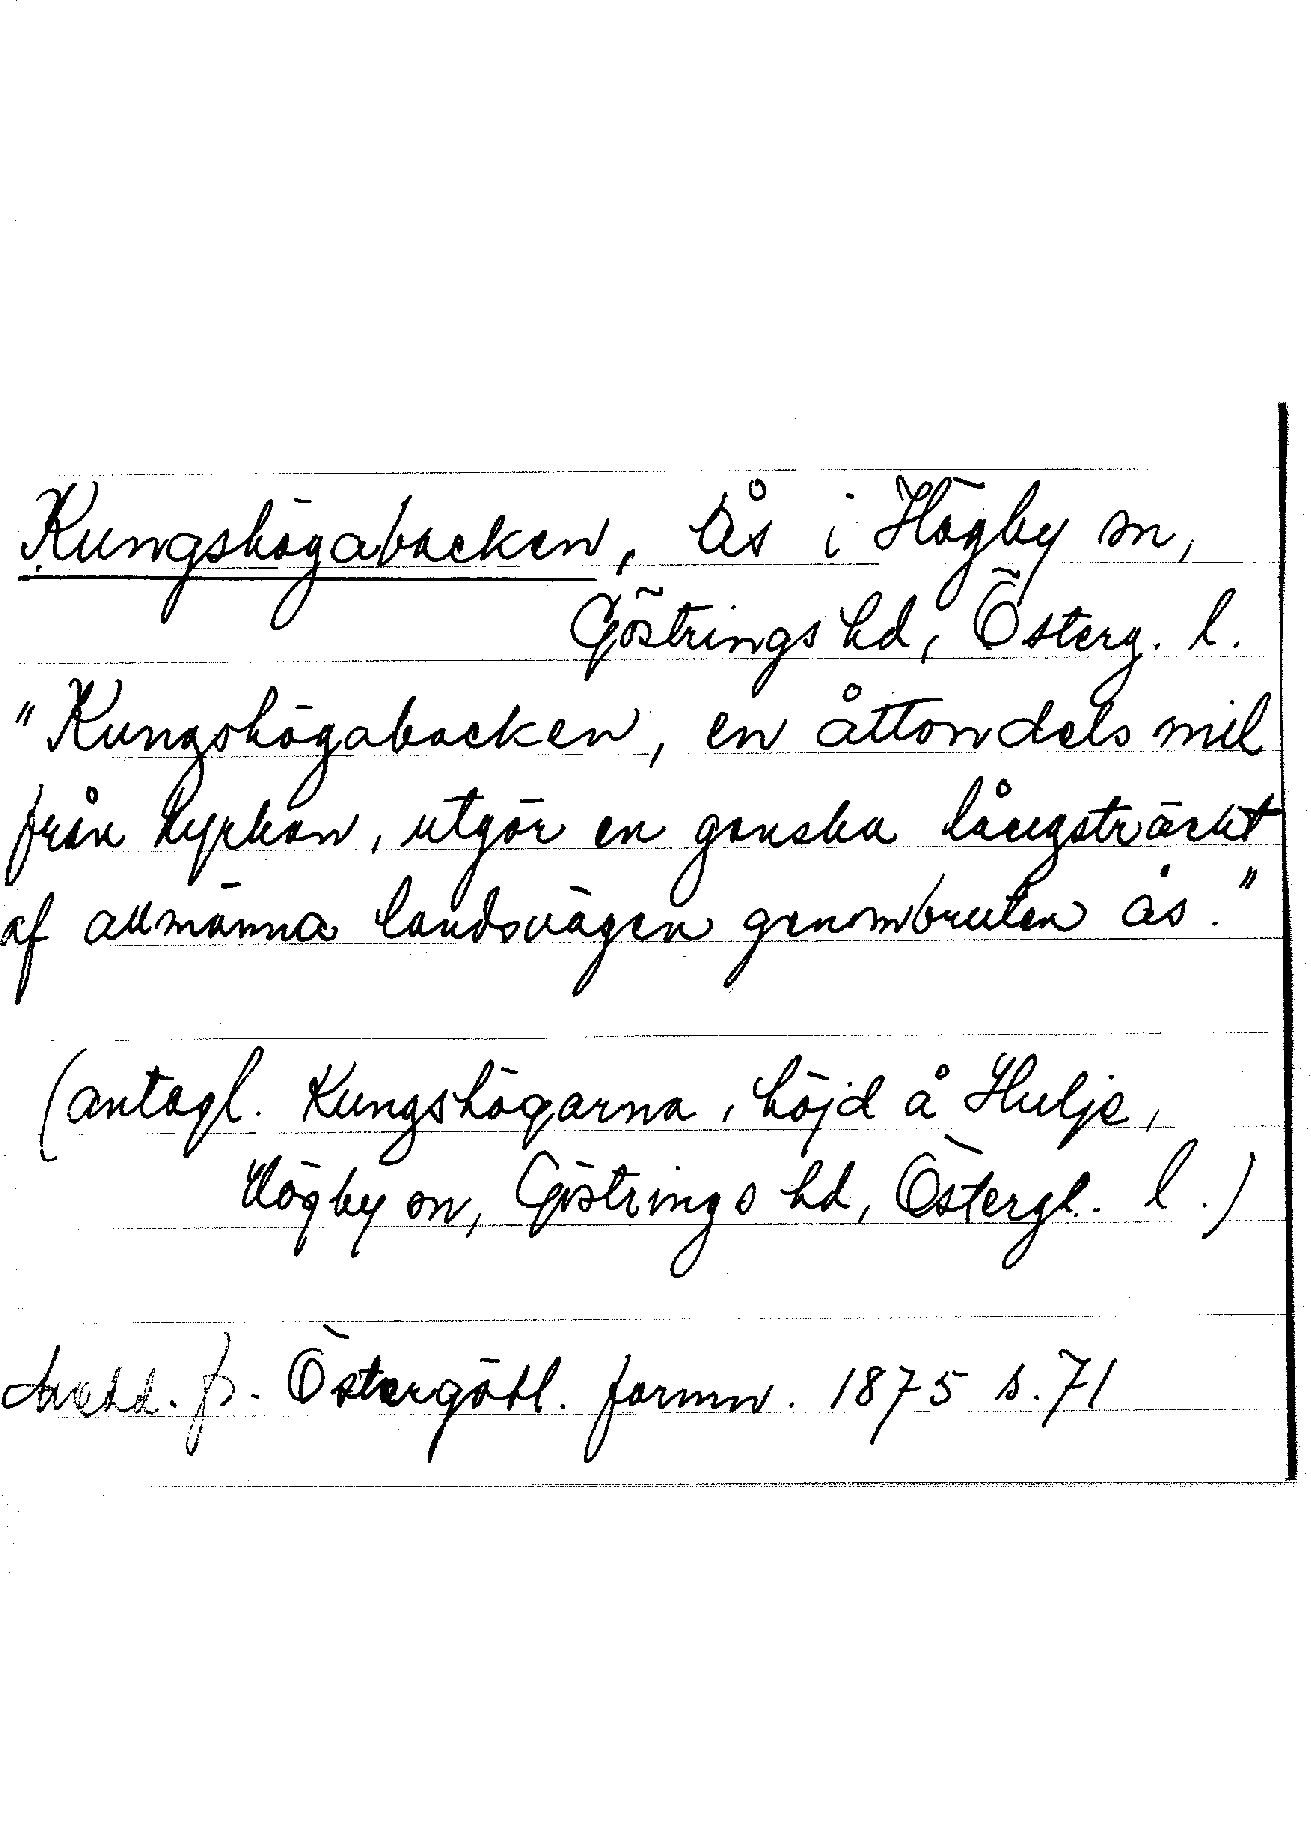 Kungshögabacken, ås i Högby sn,
Göstrings hd, Österg. l.
"Kungshögabacken, en åttondels mil
från kyrkan, utgör en ganska långsträckt
af allmänna landsvägen genombruten ås."
(antagl. Kungshögarna, höjd å Hulje,
Högby sn, Göstrings hd, Östergl. l.)
Medd. fr. Östergötl. fornm. 1875 s. 71